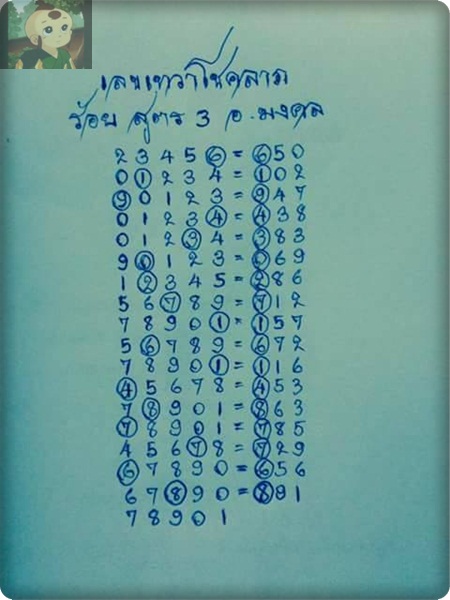 เลขเทวาโชคลาภ
ร้อย สูตร 3 อ.มงคล
2 3 4 5 6 = 650
0 1 2 3 4 = 102
9 0 1 2 3 = 947
0 1 2 3 4 = 438
0 1 2 3 4 = 383
9 0 1 2 3 = 069
1 2 3 4 5 = 286
5 6 7 8 9 = 712
7 8 9 0 1 = 157
5 6 7 8 9 = 672
7 8 9 0 1 = 116
4 5 6 7 8 = 453
7 8 9 0 1 = 863
7 8 9 0 1 = 785
4 5 6 7 8 = 729
6 7 8 9 0 = 656
6 7 8 9 0 = 891
7 8 9 0 1